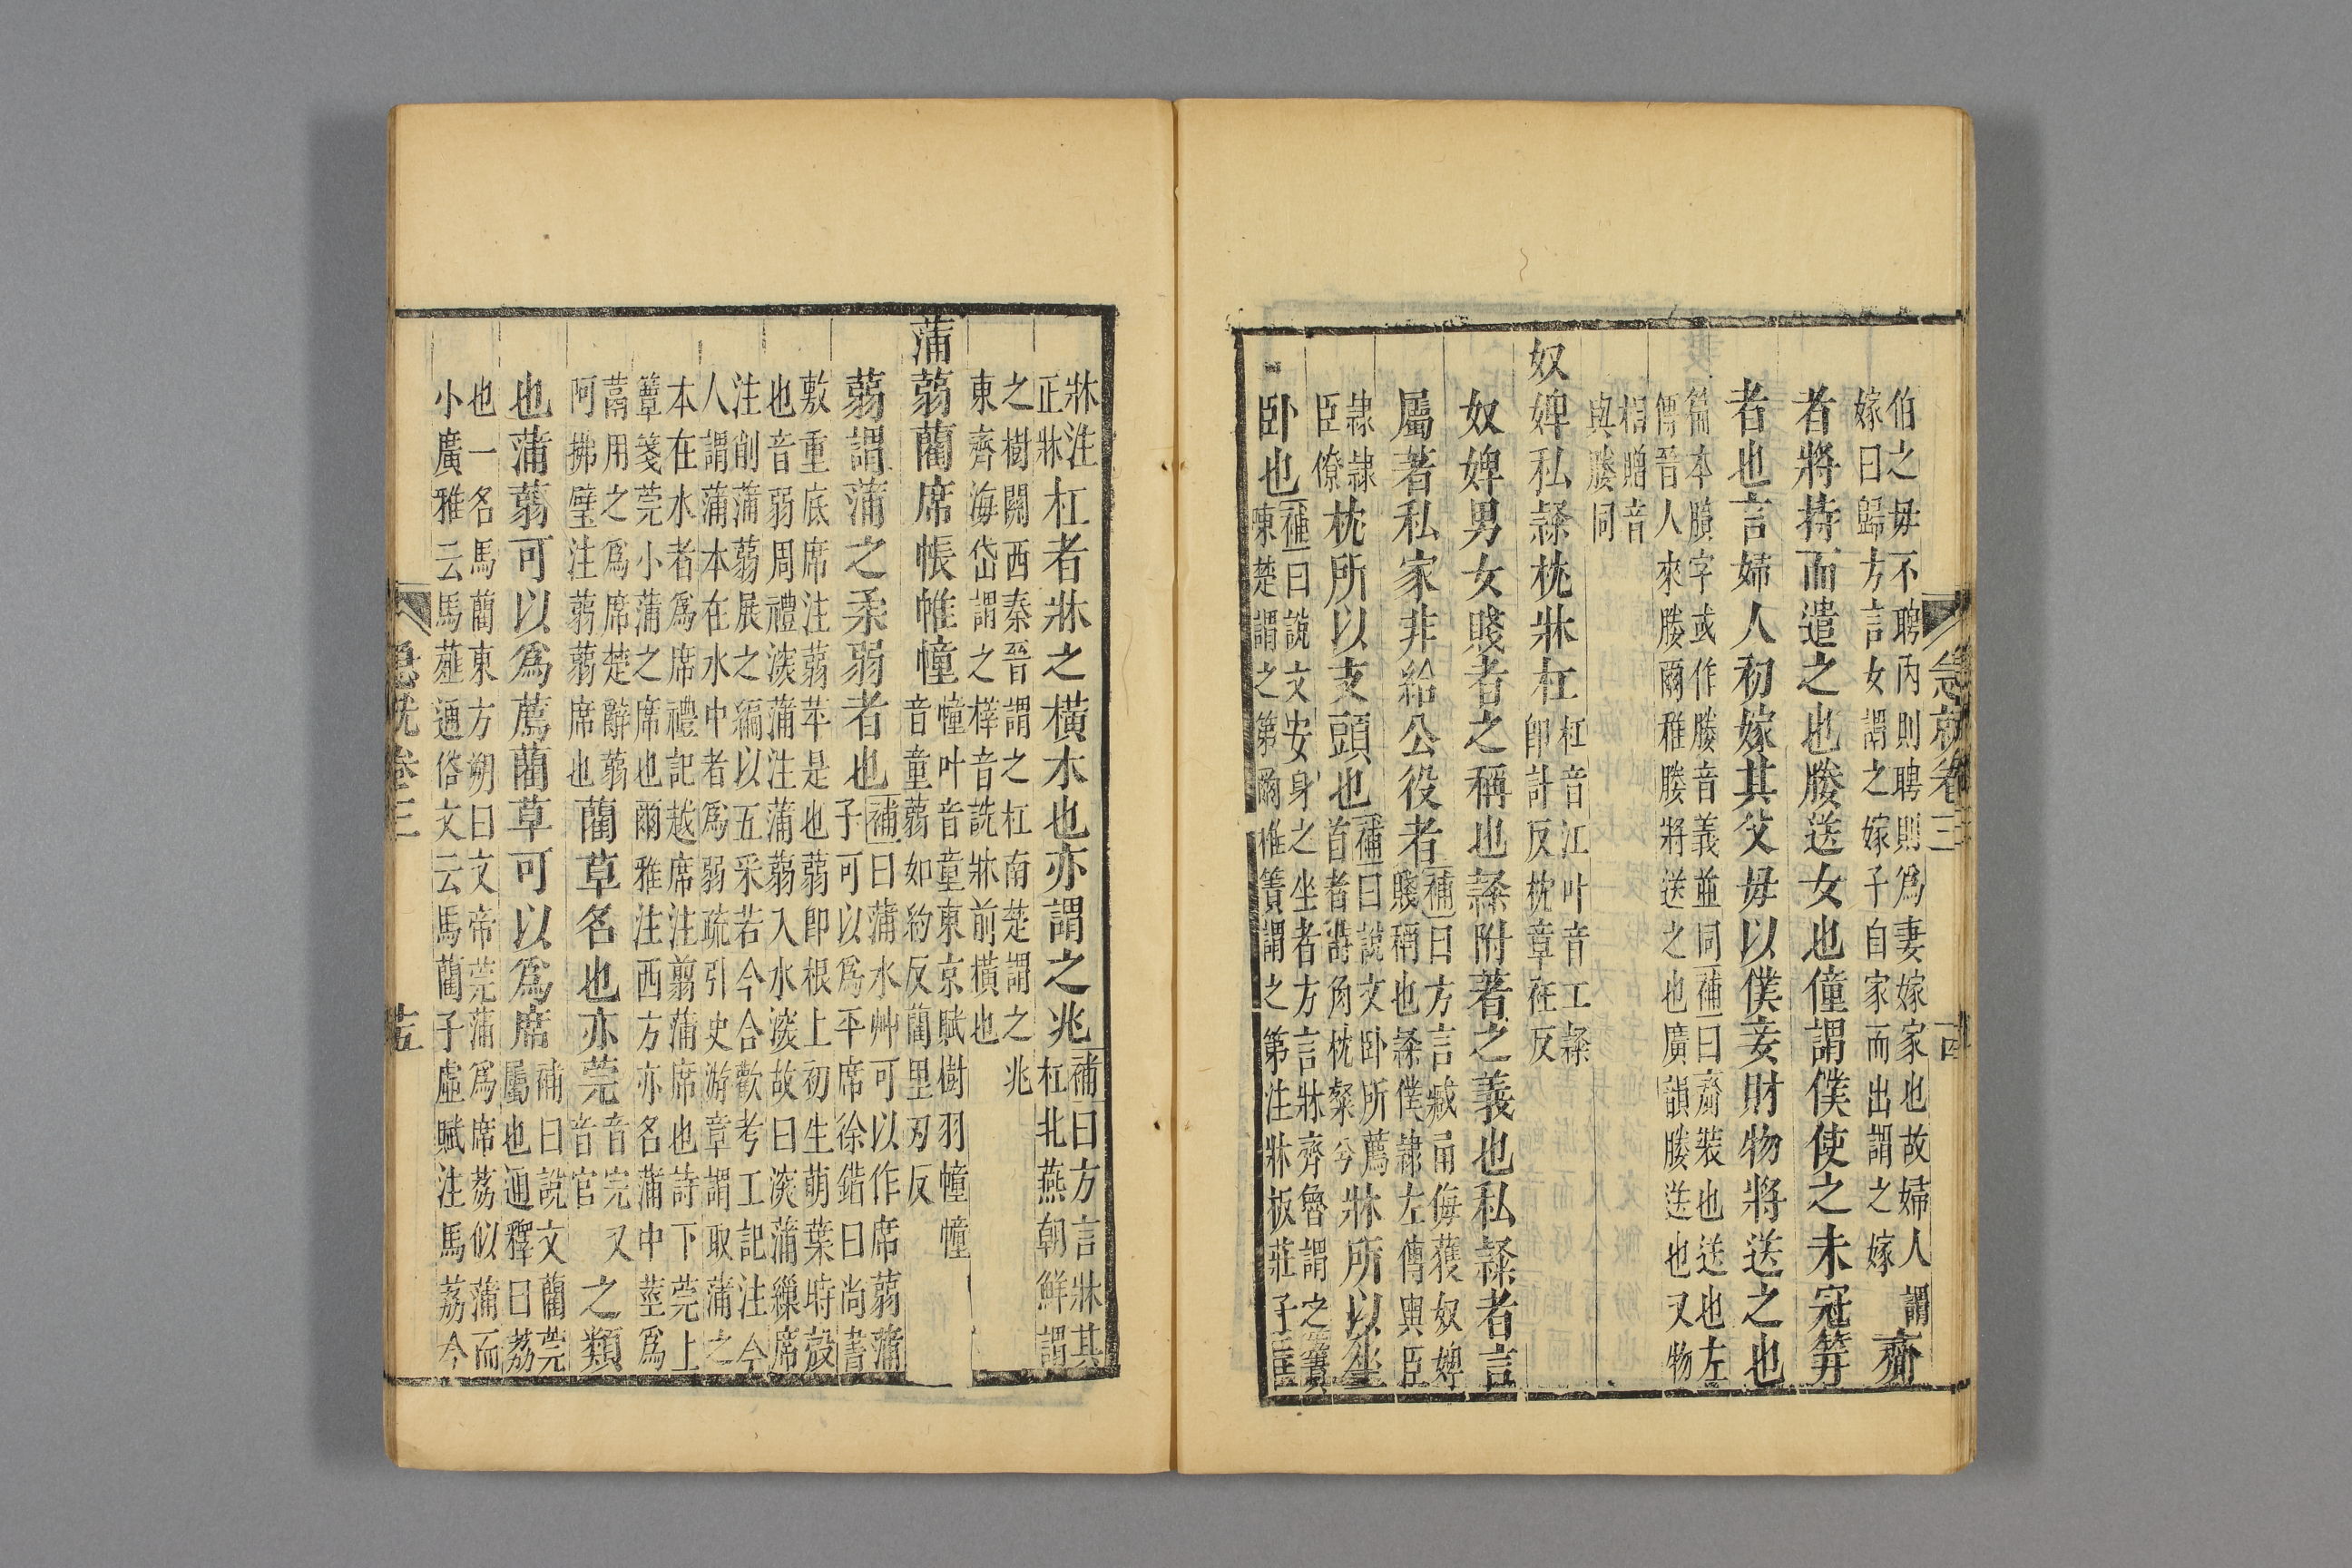 伯之毋不聘内則聘則爲妻嫁家也故婦人謂
嫁曰歸方言女謂之嫁子自家而出謂之嫁
齎
者將持而遣之也媵送女也僮謂僕使之未冠笄
者也言婦人初嫁其父毋以僕妾財物將送之也
篇本賸字或作媵音義並同補曰齎裝也送也左
傳晉人來媵爾雅媵將送之也廣韻媵送也又物
相贈音
與媵同
奴婢私隸枕牀杠
杠音江叶音工隸
郎計反枕章荏反
奴婢男女賤者之稱也隸附著之義也私隸者言
屬著私家非給公役者
補曰方言臧甬侮獲奴婢
賤稱也隸僕隸左傳輿臣
隸隸
臣僚
枕所以支頭也
補曰說文卧所薦
首者詩角枕粲兮
牀所以坐
卧也
補曰說文安身之坐者方言牀齊魯謂之簀
陳楚謂之第爾雅簀謂之第注牀板莊子匡
牀注
正牀
杠者牀之橫木也亦謂之兆
補曰方言牀其
杠北燕朝鮮謂
之樹關西秦晉謂之杠南楚謂之兆
東齊海岱謂之樺音詵牀前橫也
蒲蒻藺席帳帷幢
幢叶音童東京賦樹羽幢幢
音童蒻如約反藺里刃反
蒻謂蒲之柔弱者也
補曰蒲水艸可以作席蒻蒲
子可以爲平席徐鍇曰尚書
敷重底席注蒻苹是也蒻即根上初生萌葉時殼
也音弱周禮深蒲注蒲蒻入水深故曰深蒲纁席
注削蒲蒻展之編以五采若今合歡考工記注今
人謂蒲本在水中者爲弱疏引史游章謂取蒲之
本在水者爲席禮記越席注翦蒲席也詩下莞上
簟箋莞小蒲之席也爾雅注西方亦名蒲中莖爲
蒚用之爲席楚辭蒻
阿拂壁注蒻蒻席也
藺草名也亦莞
音完又
音官
之類
也蒲蒻可以爲薦藺草可以爲席
補曰說文藺莞
屬也通釋曰荔
也一名馬藺東方朔曰文帝莞蒲爲席荔似蒲而
小廣雅云馬薤通俗文云馬藺子虛賦注馬荔今
急就卷三